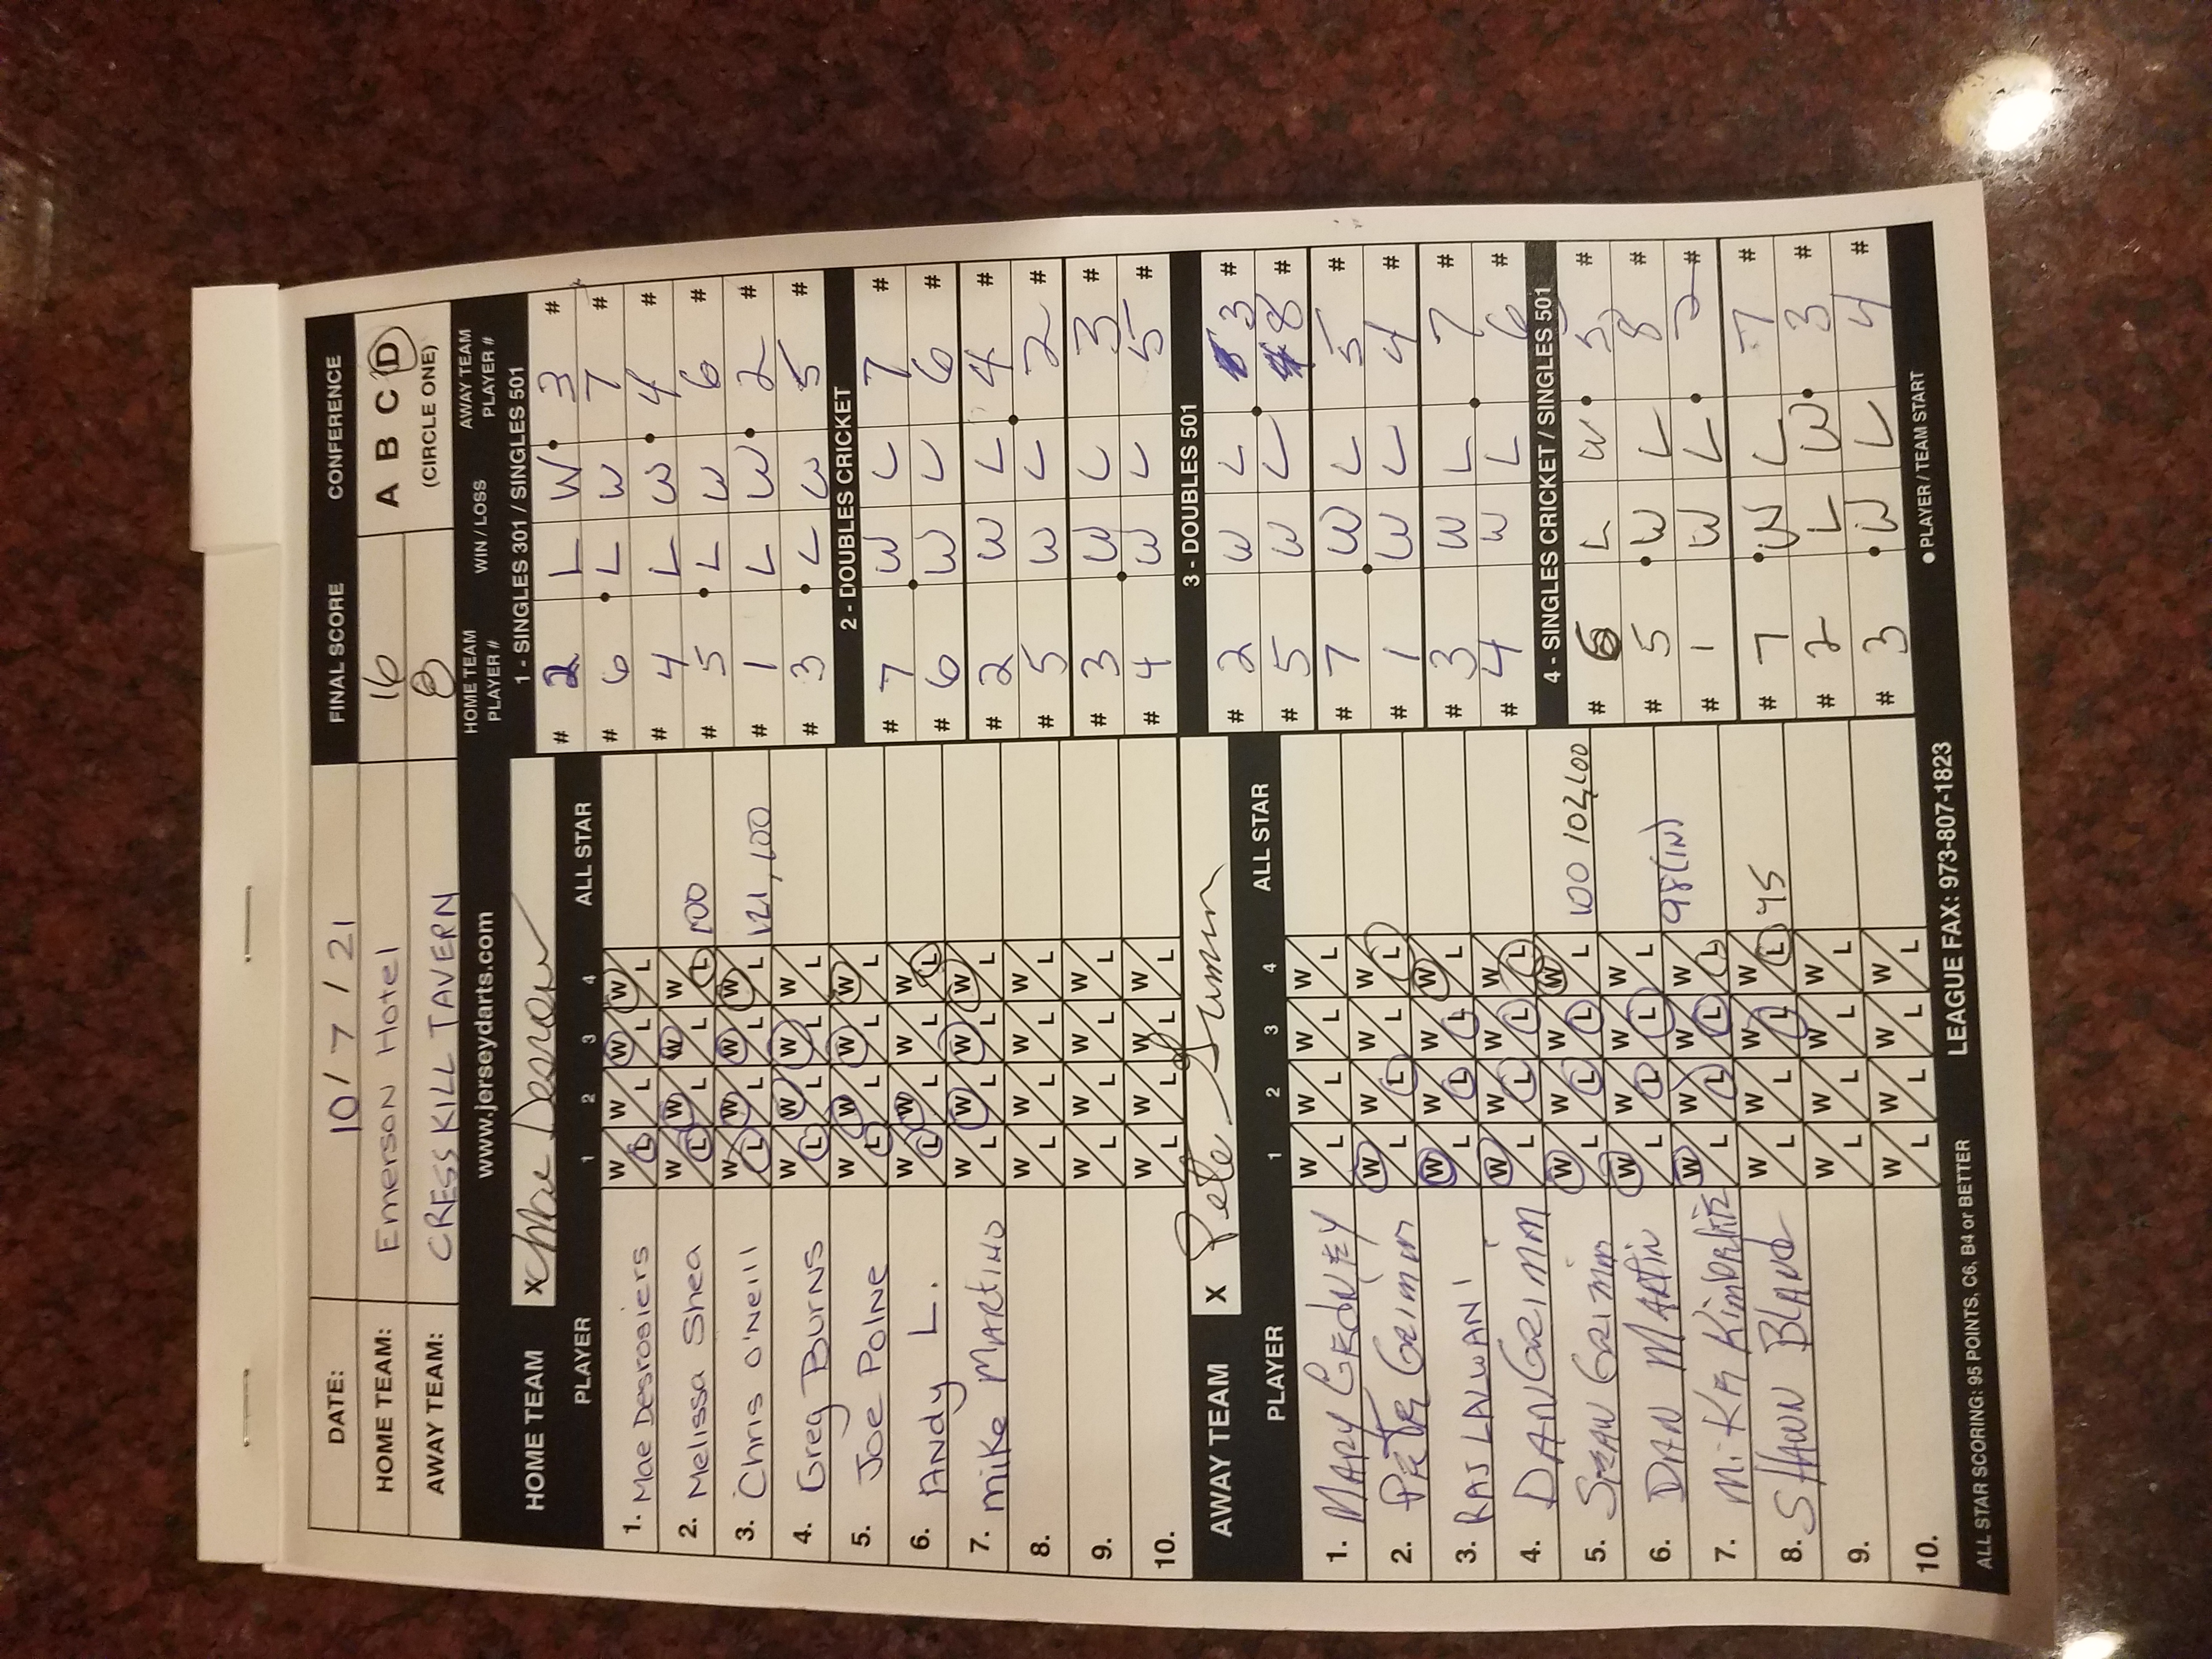 DATE: 10 / 7 / 21 FINAL SCORE CONFERENCE
HOME TEAM: Emerson Hotel 16 A B C D
AWAY TEAM: CRESS KILL TAVERN 8 (CIRCLE ONE)
www.jerseydarts.com
HOME TEAM X
PLAYER 1 2 3 4 ALL STAR
1. Mae Desrosiers W L W L W L W L
2. Melissa Shea W L W L W L W L 100
3. Chris O'Neill W L W L W L W L 121, 100
4. Greg Burns W L W L W L W L
5. Joe Polne W L W L W L W L
6. Andy L. W L W L W L W L
7. Mike Martino W L W L W L W L
8. W L W L W L W L
9. W L W L W L W L
10. W L W L W L W L
AWAY TEAM X Pete Grimm
PLAYER 1 2 3 4 ALL STAR
1. MARY GEDNEY W L W L W L W L
2. PETER GRIMM W L W L W L W L
3. RAJ LALWANI W L W L W L W L
4. DAN GRIMM W L W L W L W L
5. SEAN GRIMM W L W L W L W L 100 102, 100
6. DAN MARTIN W L W L W L W L
7. MIKE W L W L W L W L 98 (IN)
8. SHAWN BLAND W L W L W L W L 95
9. W L W L W L W L
10. W L W L W L W L
HOME TEAM PLAYER # WIN / LOSS AWAY TEAM PLAYER #
1 - SINGLES 301 / SINGLES 501
# 2 L W 3 #
# 6 L W 7 #
# 4 L W 4 #
# 5 L W 6 #
# 1 L W 2 #
# 3 L W 5 #
2 - DOUBLES CRICKET
# 7 W L 7 #
# 6 W L 6 #
# 2 W L 4 #
# 5 W L 2 #
# 3 W L 3 #
# 4 W L 5 #
3 - DOUBLES 501
# 2 W L 3 #
# 5 W L 8 #
# 7 W L 5 #
# 1 W L 4 #
# 3 W L 7 #
# 4 W L 6 #
4 - SINGLES CRICKET / SINGLES 501
# 6 L W 5 #
# 5 W L 8 #
# 1 W L 2 #
# 7 W L 7 #
# 2 L W 3 #
# 3 W L 4 #
● PLAYER / TEAM START
ALL STAR SCORING: 95 POINTS, C6, B4 or BETTER LEAGUE FAX: 973-807-1823